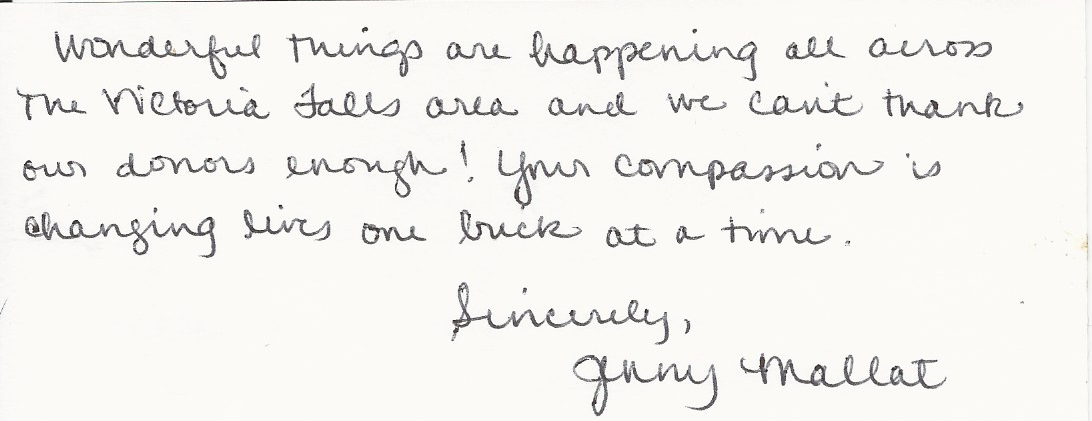 Wonderful things are happening all across
the Victoria Falls area and we can't thank
our donors enough! Your compassion is
changing lives one brick at a time.
Sincerely,
Jenny Mallat